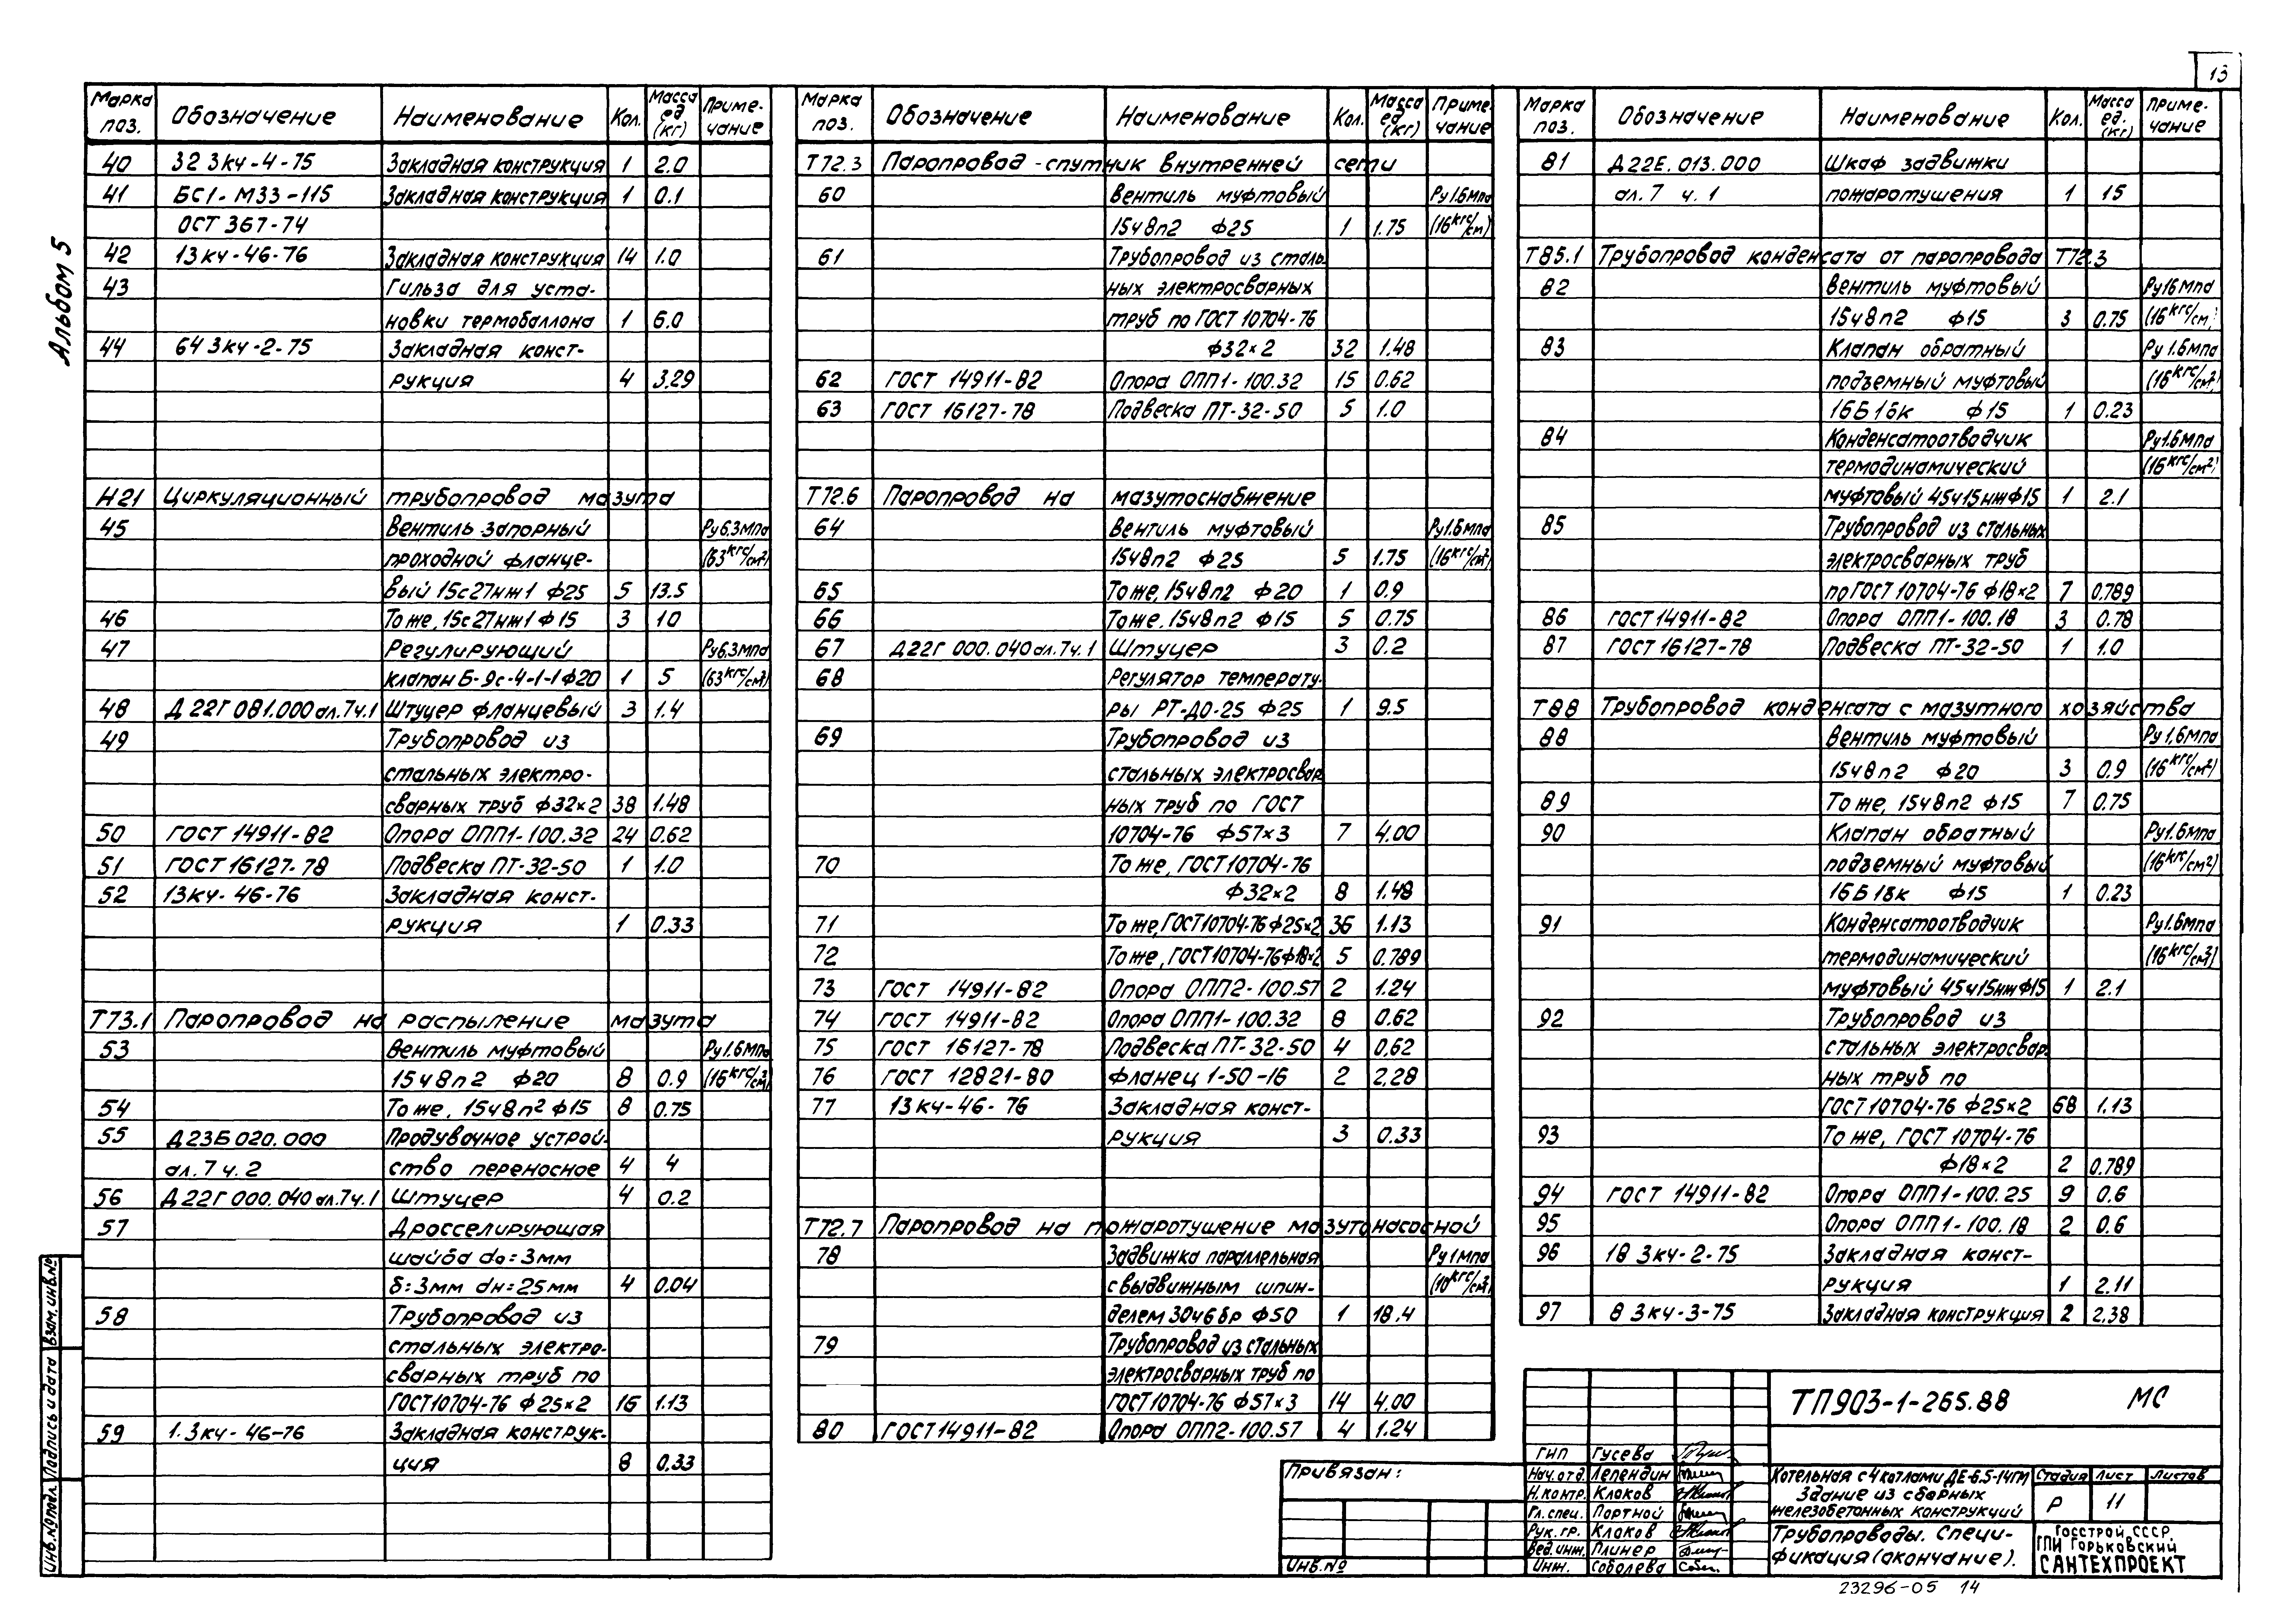 13
Альбом 5
Марка поз. Обозначение Наименование Кол. Масса ед (кг) Приме-чание
40 32 Зкч-4-75 Закладная конструкция 1 2.0
41 БС1-М33-115 Закладная конструкция 1 0.1
ОСТ 367-74
42 13кч-46-76 Закладная конструкция 14 1.0
43 Гильза для уста-
новки термобаллона 1 6.0
44 64 Зкч-2-75 Закладная конст-
рукция 4 3.29
Н21 Циркуляционный трубопровод мазута
45 Вентиль запорный Ру6.3мпа
проходной фланце- (63кгс/см²)
вый 15с27нж1 ф25 5 13.5
46 То же, 15с27нж1 ф15 3 10
47 Регулирующий Ру6.3мпа
клапан Б-9с-4-1-1 ф20 1 5 (63кгс/см²)
48 Д22Г081.000 ал.7ч.1 Штуцер фланцевый 3 1.4
49 Трубопровод из
стальных электро-
сварных труб ф32×2 38 1.48
50 ГОСТ 14911-82 Опора ОПП1-100.32 24 0.62
51 ГОСТ 16127-78 Подвеска ПТ-32-50 1 1.0
52 13кч-46-76 Закладная конст-
рукция 1 0.33
Т73.1 Паропровод на распыление мазута
53 Вентиль муфтовый Ру1.6мпа
15ч8п2 ф20 8 0.9 (16кгс/см²)
54 То же, 15ч8п2 ф15 8 0.75
55 Д23Б020.000 Продувочное устрой-
ал.7 ч.2 ство переносное 4 4
56 Д22Г000.040 ал.7ч.1 Штуцер 4 0.2
57 Дросселирующая
шайба dо=3мм
δ=3мм dн=25мм 4 0.04
58 Трубопровод из
стальных электро-
сварных труб по
ГОСТ10704-76 ф25×2 16 1.13
59 1.3кч-46-76 Закладная конструк-
ция 8 0.33
Марка поз. Обозначение Наименование Кол. Масса ед (кг) Приме-чание
Т72.3 Паропровод-спутник внутренней сети
60 Вентиль муфтовый Ру1.6мпа
15ч8п2 ф25 1 1.75 (16кгс/см)
61 Трубопровод из сталь
ных электросварных
труб по ГОСТ 10704-76
ф32×2 32 1.48
62 ГОСТ 14911-82 Опора ОПП1-100.32 15 0.62
63 ГОСТ 16127-78 Подвеска ПТ-32-50 5 1.0
Т72.6 Паропровод на мазутоснабжение
64 Вентиль муфтовый Ру1.6мпа
15ч8п2 ф25 5 1.75 (16кгс/см²
65 То же, 15ч8п2 ф20 1 0.9
66 То же, 15ч8п2 ф15 5 0.75
67 Д22Г000.040 ал.7ч.1 Штуцер 3 0.2
68 Регулятор температу-
ры РТ-ДО-25 ф25 1 9.5
69 Трубопровод из
стальных электросвар
ных труб по ГОСТ
10704-76 ф57×3 7 4.00
70 То же, ГОСТ10704-76
ф32×2 8 1.48
71 То же, ГОСТ10704-76 ф25×2 36 1.13
72 То же, ГОСТ10704-76 ф18×2 5 0.789
73 ГОСТ 14911-82 Опора ОПП2-100.57 2 1.24
74 ГОСТ 14911-82 Опора ОПП1-100.32 8 0.62
75 ГОСТ 16127-78 Подвеска ПТ-32-50 4 0.62
76 ГОСТ 12821-80 Фланец 1-50-16 2 2.28
77 13кч-46-76 Закладная конст-
рукция 3 0.33
Т72.7 Паропровод на пожаротушение мазутонасосной
78 Задвижка параллельная Ру1мпа
с выдвижным шпин- (10кгс/см²
делем 30ч6бр ф50 1 18.4
79 Трубопровод из стальных
электросварных труб по
ГОСТ10704-76 ф57×3 14 4.00
80 ГОСТ14911-82 Опора ОПП2-100.57 4 1.24
Марка поз. Обозначение Наименование Кол. Масса ед. (кг) Приме-чание
81 Д22Е.013.000 Шкаф задвижки
ал.7 ч.1 пожаротушения 1 15
Т85.1 Трубопровод конденсата от паропровода Т72.3
82 Вентиль муфтовый Ру16мпа
15ч8п2 ф15 3 0.75 (16кгс/см²
83 Клапан обратный Ру1.6мпа
подъемный муфтовый (16кгс/см²)
16Б1бк ф15 1 0.23
84 Конденсатоотводчик Ру1.6мпа
термодинамический (16кгс/см²)
муфтовый 45ч15нж ф15 1 2.1
85 Трубопровод из стальных
электросварных труб
по ГОСТ 10704-76 ф18×2 7 0.789
86 ГОСТ14911-82 Опора ОПП1-100.18 3 0.78
87 ГОСТ16127-78 Подвеска ПТ-32-50 1 1.0
Т88 Трубопровод конденсата с мазутного хозяйства
88 Вентиль муфтовый Ру1,6мпа
15ч8п2 ф20 3 0.9 (16кгс/см²)
89 То же, 15ч8п2 ф15 7 0.75
90 Клапан обратный Ру1.6мпа
подъемный муфтовый (16кгс/см²)
16Б1бк ф15 1 0.23
91 Конденсатоотводчик Ру1.6мпа
термодинамический (16кгс/см²)
муфтовый 45ч15нж ф15 1 2.1
92 Трубопровод из
стальных электросвар
ных труб по
ГОСТ10704-76 ф25×2 68 1.13
93 То же, ГОСТ 10704-76
ф18×2 2 0.789
94 ГОСТ 14911-82 Опора ОПП1-100.25 9 0.6
95 Опора ОПП1-100.18 2 0.6
96 18 Зкч-2-75 Закладная конст-
рукция 1 2.11
97 8 Зкч-3-75 Закладная конструкция 2 2.38
Привязан:
Инв.№
ТП903-1-265.88 МС
ГИП Гусева
Нач.отд. Лепендин
Н.контр. Клоков
Гл.спец. Портной
Рук.гр. Клоков
Вед.инж. Плинер
Инж. Соболева
Котельная с 4 котлами ДЕ-6.5-14ГМ
Здание из сборных
железобетонных конструкций
Стадия Лист Листов
Р 11
Трубопроводы. Специ-
фикация (окончание).
Госстрой СССР.
ГПИ Горьковский
САНТЕХПРОЕКТ
23296-05 14
Инв.№подл. Подпись и дата Взам.инв.№